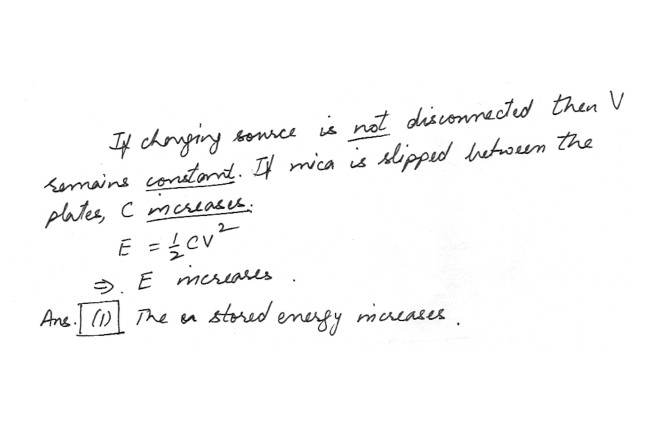 If charging source is not disconnected then V
remains constant. If mica is slipped between the
plates, C increases.
E = ½CV²
⇒. E increases.
Ans. (1) The stored energy increases.